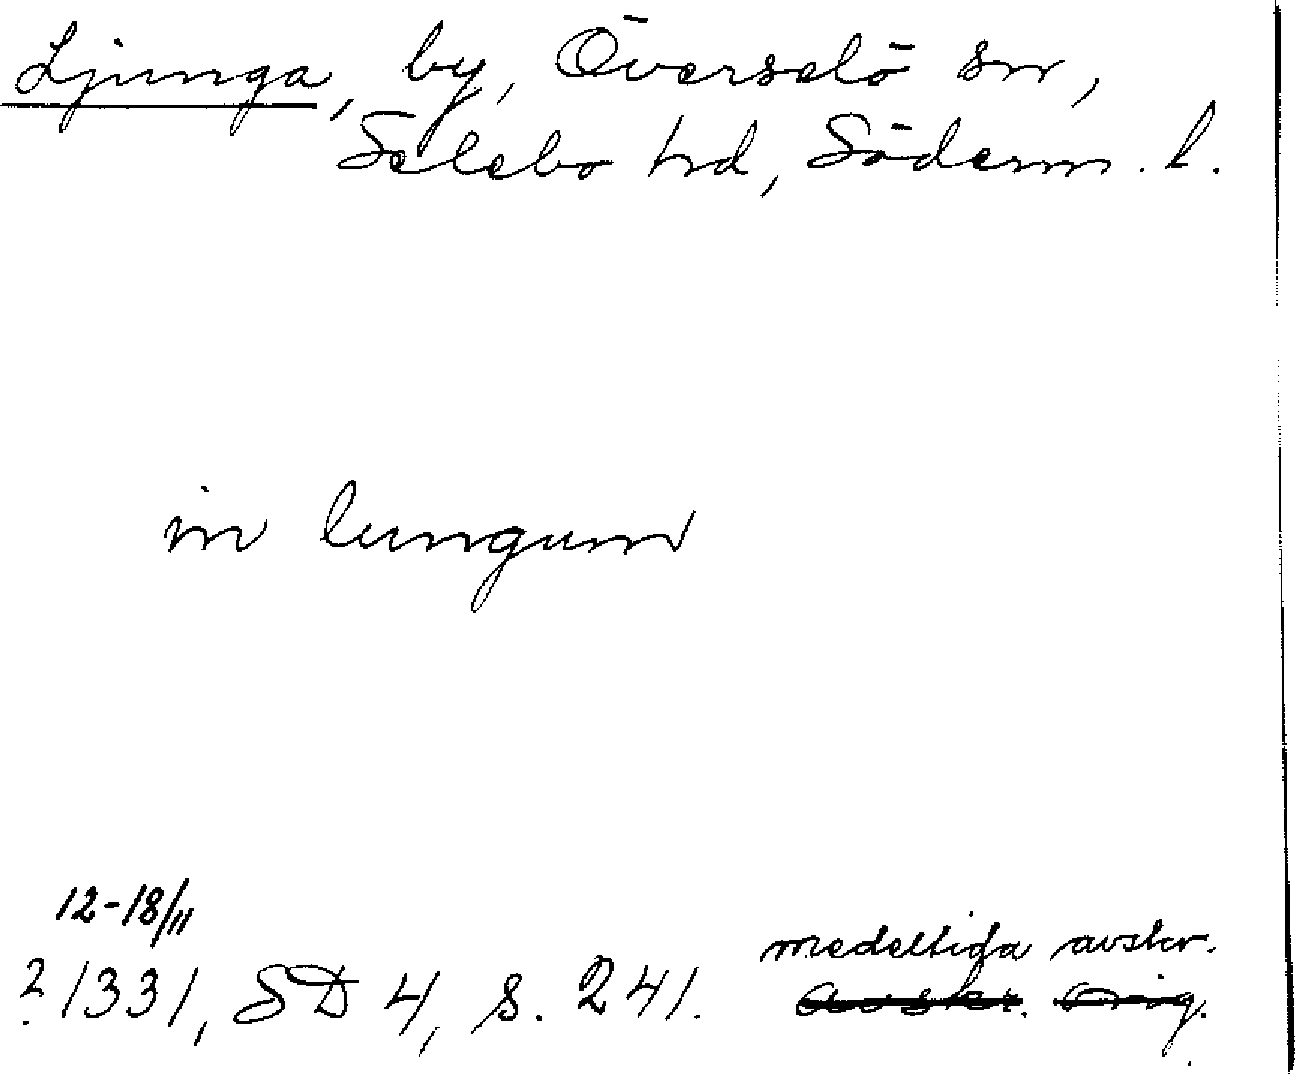 Ljunga, by, Överselö sn,
Selebo hd, Söderm. l.
in lungum
12-18/11
? 1331, SD 4, s. 241. medeltida avskr.
avskr. orig.